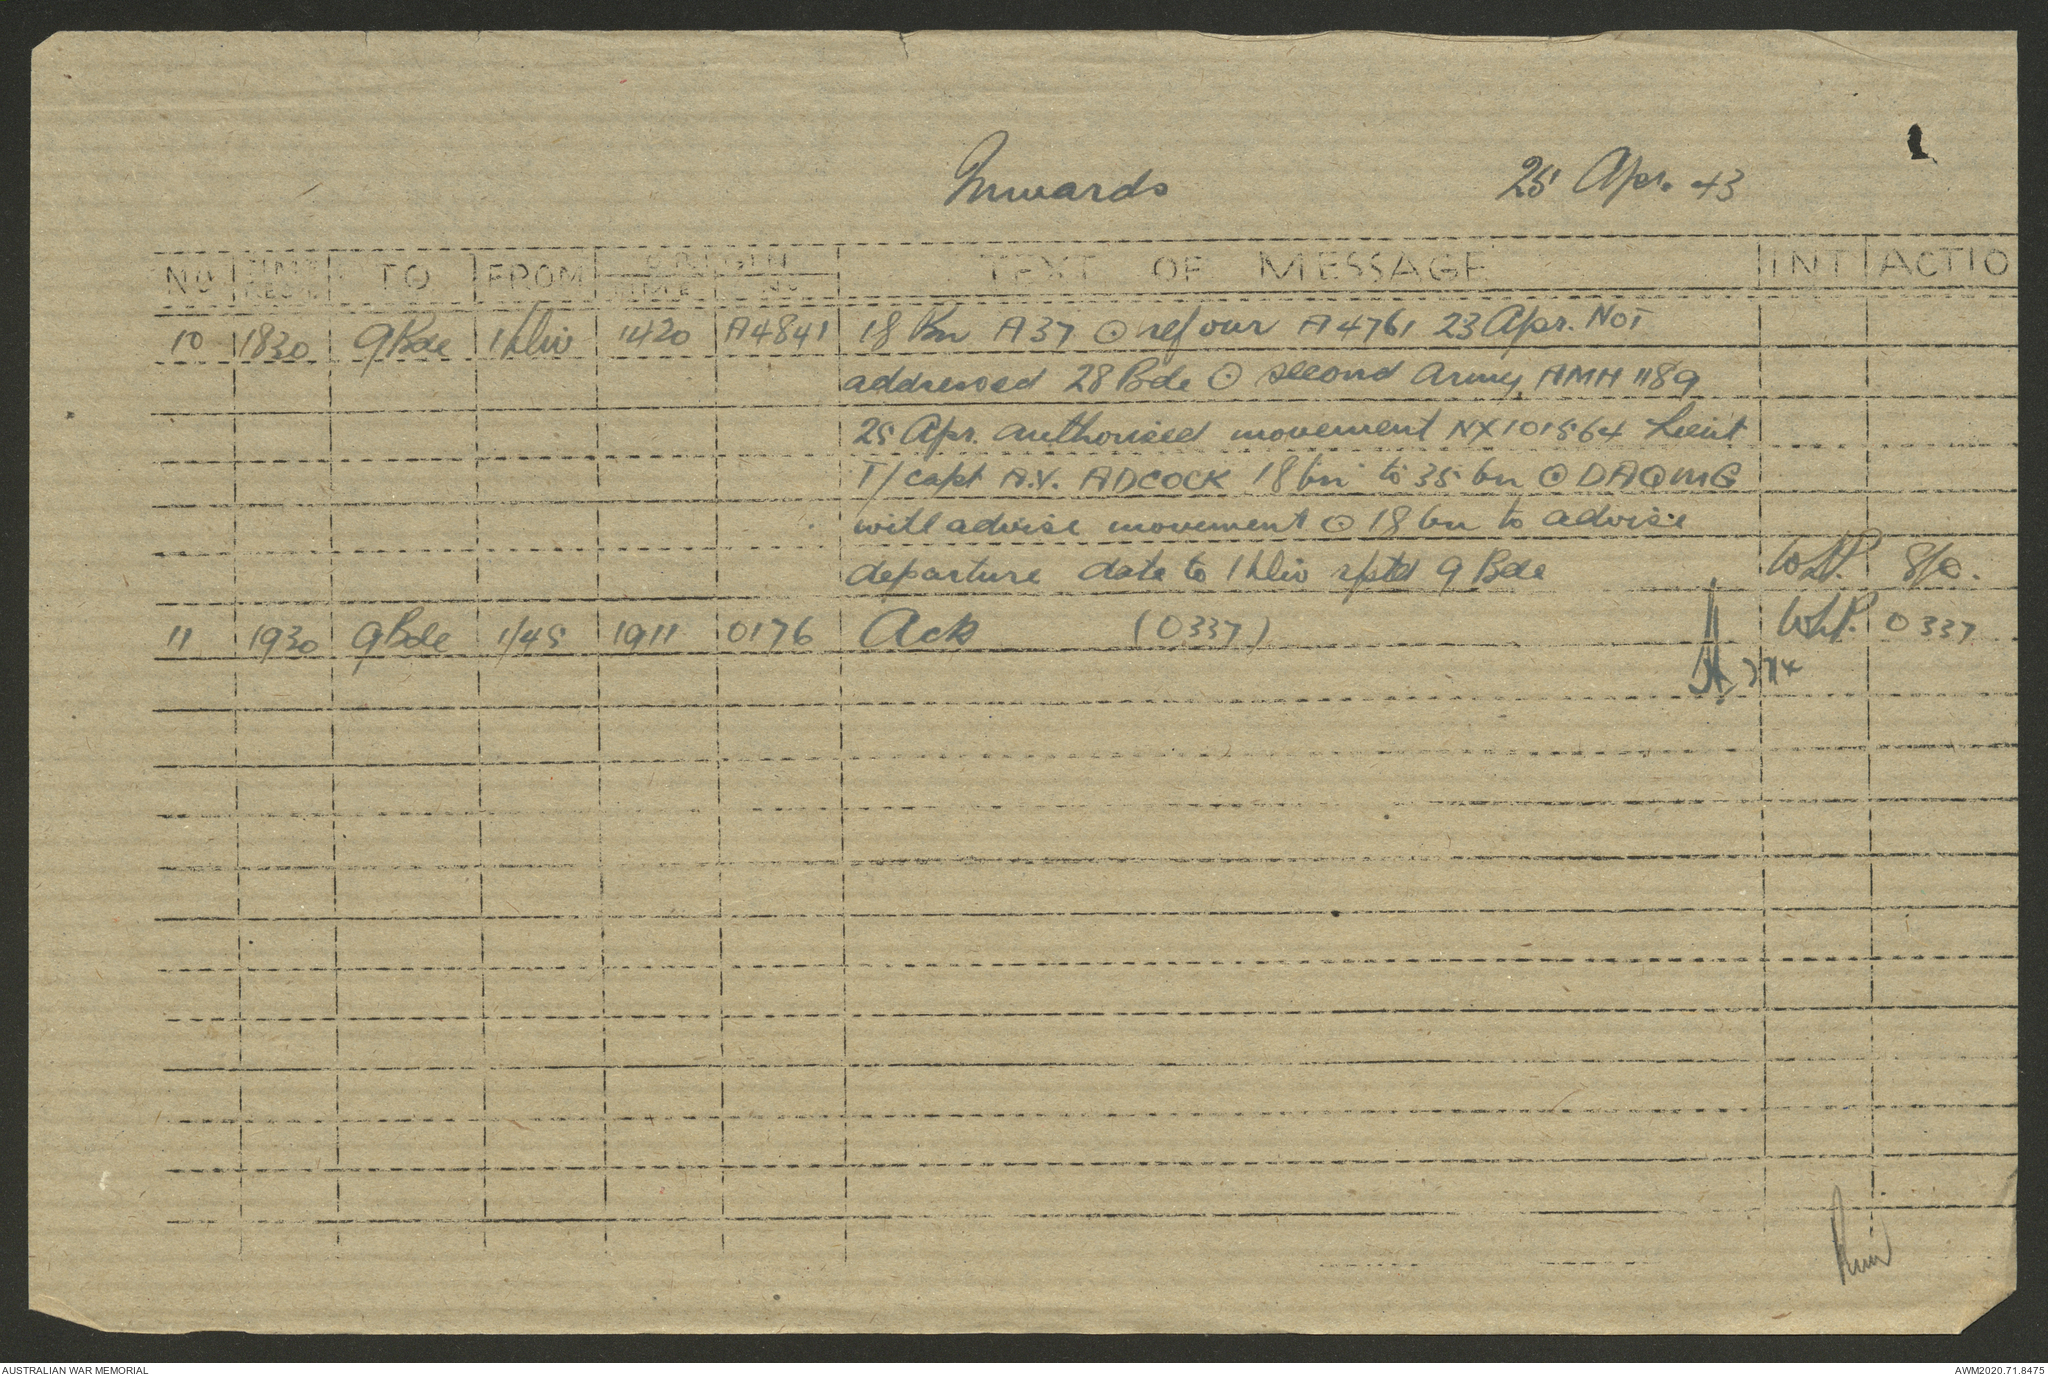 Inwards 25 Apr. 43
NO TIME RECD. TO FROM ORIGIN TEXT OF MESSAGE INT ACTIO
TIME NO
10 1830 9 Bde 1 Div 1420 A4841 18 Bn A37 ⊙ ref our A4761 23 Apr. NOT
addressed 28 Bde ⊙ second Army AMH 1189
25 Apr. authorised movement NX101564 Lieut
T/capt A.Y. ADCOCK 18 bn to 35 bn ⊙ DAQMG
will advise movement ⊙ 18 bn to advise
departure date to 1 Div rptd 9 Bde W.L.P.
11 1930 9 Bde 1/45 1911 0176 Ack (0337) W.L.P. 0337
AUSTRALIAN WAR MEMORIAL AWM2020.71.8475